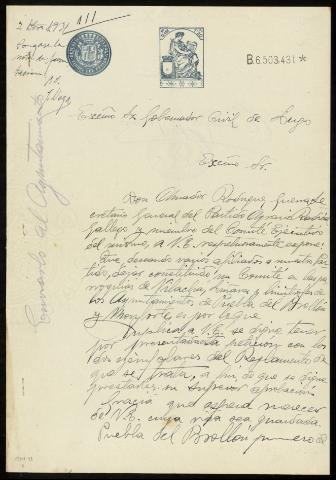 2 1931
111
B.6.503.431 *
Enviado al Ayuntamiento
Excmo Sr Gobernador Civil de Lugo
Excmo Sr.
Don Amador Rodriguez Guerra, Se-
cretario General del Partido Agrario Radical
Gallego y miembro del Comité Ejecutivo
del mismo, a V.E. respetuosamente expone:
Que deseando varios afiliados a nuestro Par-
tido, dejar constituido un Comité en las pa-
rroquias de
los Ayuntamientos de Puebla del Brollon
y Monforte es por lo que
Suplica a V.E. se digne tener
por presentada esta petición con los
dos ejemplares del Reglamento de
que se trata, a fin de que se digne
prestarles su superior aprobación.
Gracia que espera merecer
de V.E. cuya vida sea guardada.
Puebla del Brollon primero de